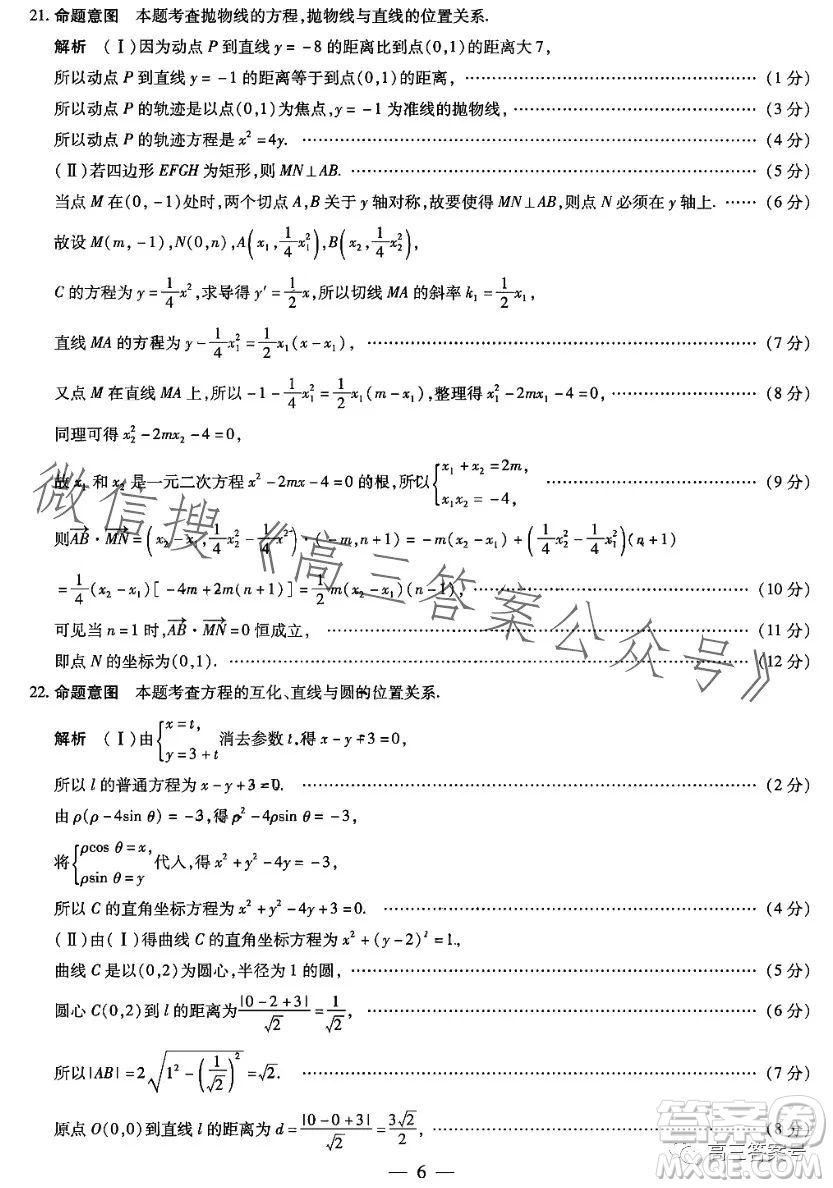 21. 命题意图　本题考查抛物线的方程,抛物线与直线的位置关系.
解析　(Ⅰ)因为动点 P 到直线 y = -8 的距离比到点(0,1)的距离大7,
所以动点 P 到直线 y = -1 的距离等于到点(0,1)的距离, …… (1 分)
所以动点 P 的轨迹是以点(0,1)为焦点,y = -1 为准线的抛物线, …… (3 分)
所以动点 P 的轨迹方程是 x² = 4y. …… (4 分)
(Ⅱ)若四边形 EFGH 为矩形,则 MN⊥AB. …… (5 分)
当点 M 在(0, -1)处时,两个切点 A,B 关于 y 轴对称,故要使得 MN⊥AB,则点 N 必须在 y 轴上. …… (6 分)
故设 M(m, -1),N(0,n),A(x₁, 1/4 x₁²),B(x₂, 1/4 x₂²),
C 的方程为 y = 1/4 x²,求导得 y′ = 1/2 x,所以切线 MA 的斜率 k₁ = 1/2 x₁,
直线 MA 的方程为 y - 1/4 x₁² = 1/2 x₁(x - x₁), …… (7 分)
又点 M 在直线 MA 上,所以 -1 - 1/4 x₁² = 1/2 x₁(m - x₁),整理得 x₁² - 2mx₁ - 4 = 0, …… (8 分)
同理可得 x₂² - 2mx₂ - 4 = 0,
故 x₁ 和 x₂ 是一元二次方程 x² - 2mx - 4 = 0 的根,所以 { x₁ + x₂ = 2m, x₁x₂ = -4, …… (9 分)
则 AB→ · MN→ = (x₂ - x₁, 1/4 x₂² - 1/4 x₁²) · (-m, n+1) = -m(x₂ - x₁) + (1/4 x₂² - 1/4 x₁²)(n+1)
= 1/4 (x₂ - x₁)[ -4m + 2m(n+1)] = 1/2 m(x₂ - x₁)(n - 1), …… (10 分)
可见当 n = 1 时,AB→ · MN→ = 0 恒成立, …… (11 分)
即点 N 的坐标为(0,1). …… (12 分)
22. 命题意图　本题考查方程的互化、直线与圆的位置关系.
解析　(Ⅰ)由 { x = t, y = 3 + t 消去参数 t,得 x - y + 3 = 0,
所以 l 的普通方程为 x - y + 3 = 0. …… (2 分)
由 ρ(ρ - 4sin θ) = -3,得 ρ² - 4ρsin θ = -3,
将 { ρcos θ = x, ρsin θ = y 代入,得 x² + y² - 4y = -3,
所以 C 的直角坐标方程为 x² + y² - 4y + 3 = 0. …… (4 分)
(Ⅱ)由(Ⅰ)得曲线 C 的直角坐标方程为 x² + (y - 2)² = 1.,
曲线 C 是以(0,2)为圆心,半径为 1 的圆, …… (5 分)
圆心 C(0,2)到 l 的距离为 |0 - 2 + 3|/√2 = 1/√2, …… (6 分)
所以|AB| = 2√(1² - (1/√2)²) = √2. …… (7 分)
原点 O(0,0)到直线 l 的距离为 d = |0 - 0 + 3|/√2 = 3√2/2, …… (8 分)
— 6 —
微信搜《高三答案公众号》
答案圈
高三答案号
MXQE.COM